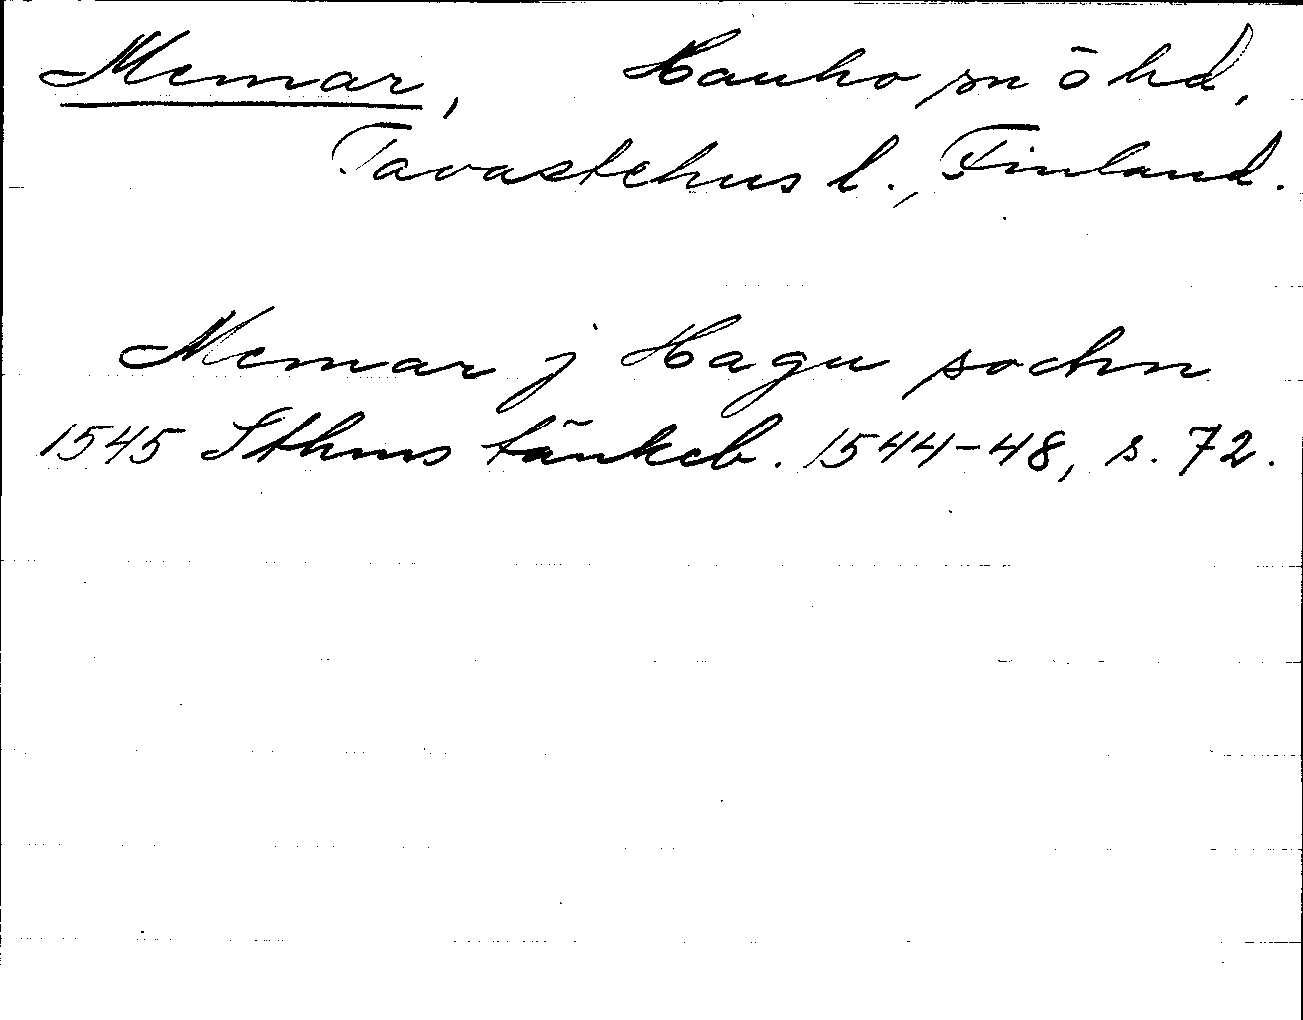 Memar, Hauho sn o hd,
Tavastehus l., Finland.
Memar j Hagu sochn
1545 Sthms tänkeb. 1544-48, s. 72.